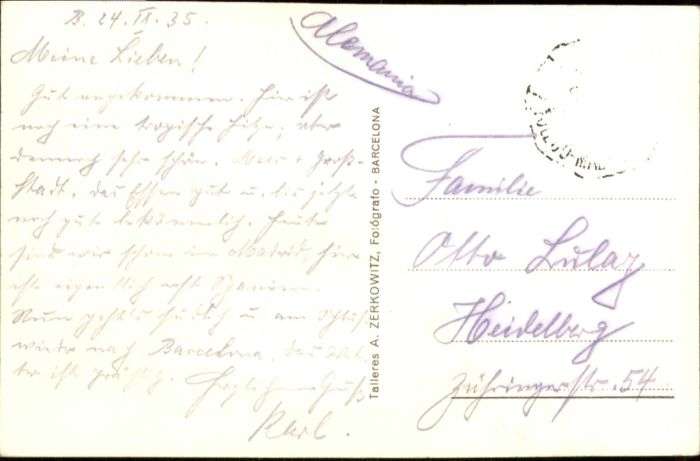 B. 24. IX. 35.
Meine Lieben!
Gut angekommen. Hier ist
noch eine tropische Hitze, aber
dennoch sehr schön. Groß-
stadt, das Essen gut u. bis jetzt
noch gut bekömmlich. Heute
sind wir schon in Madrid, hier
ist eigentlich erst Spanien.
Nun geht's südlich u. am Schluß
wieder nach Barcelona, das
ist
Karl.
Alemania
Talleres A. ZERKOWITZ, Fotógrafo - BARCELONA
Familie
Otto Lulay
Heidelberg
Zähringerstr. 54